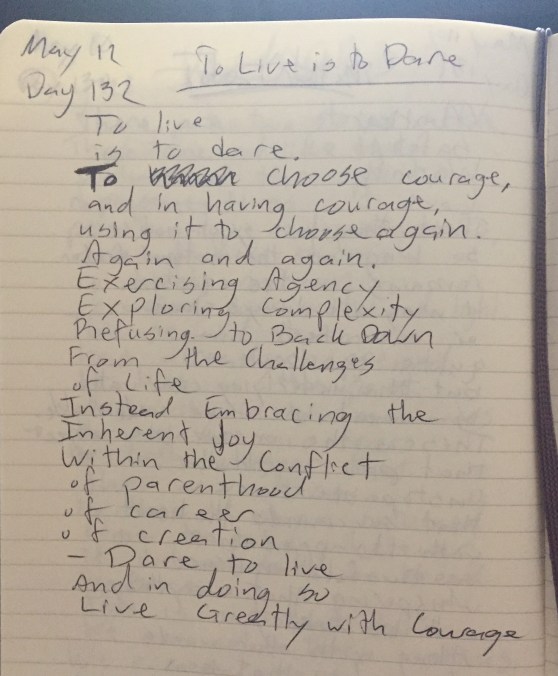 May 12
To Live is to Dare
Day 132
To live
is to dare.
To choose courage,
and in having courage,
using it to choose again.
Again and again.
Exercising Agency
Exploring Complexity
Refusing to Back Down
From the Challenges
of Life
Instead Embracing the
Inherent Joy
Within the Conflict
of parenthood
of career
of creation
– Dare to live
And in doing so
Live Greatly with Courage